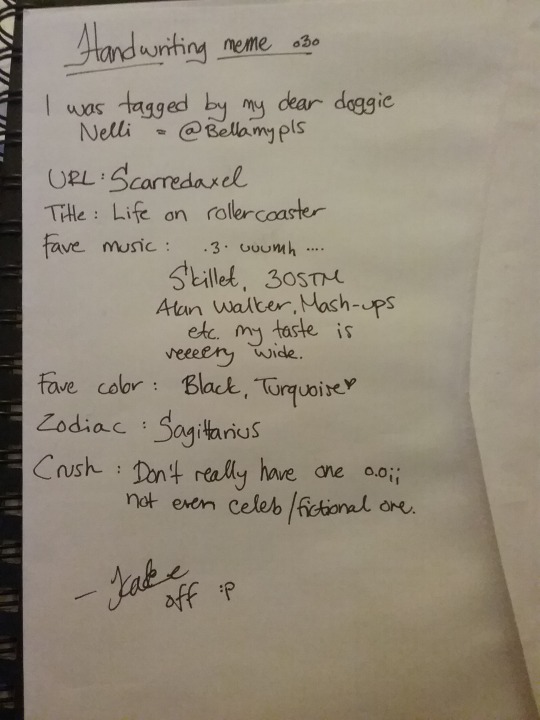 Handwriting meme o3o
I was tagged by my dear doggie
Nelli = @Bellamypls
URL : Scarredaxel
Title : Life on rollercoaster
Fave music : .3. uuumh ....
Skillet, 30STM
Alan Walker, Mash-ups
etc. my taste is
veeeery wide.
Fave color : Black, Turquoise♥
Zodiac : Sagittarius
Crush : Don't really have one o.o;;
not even celeb/fictional one.
off :P